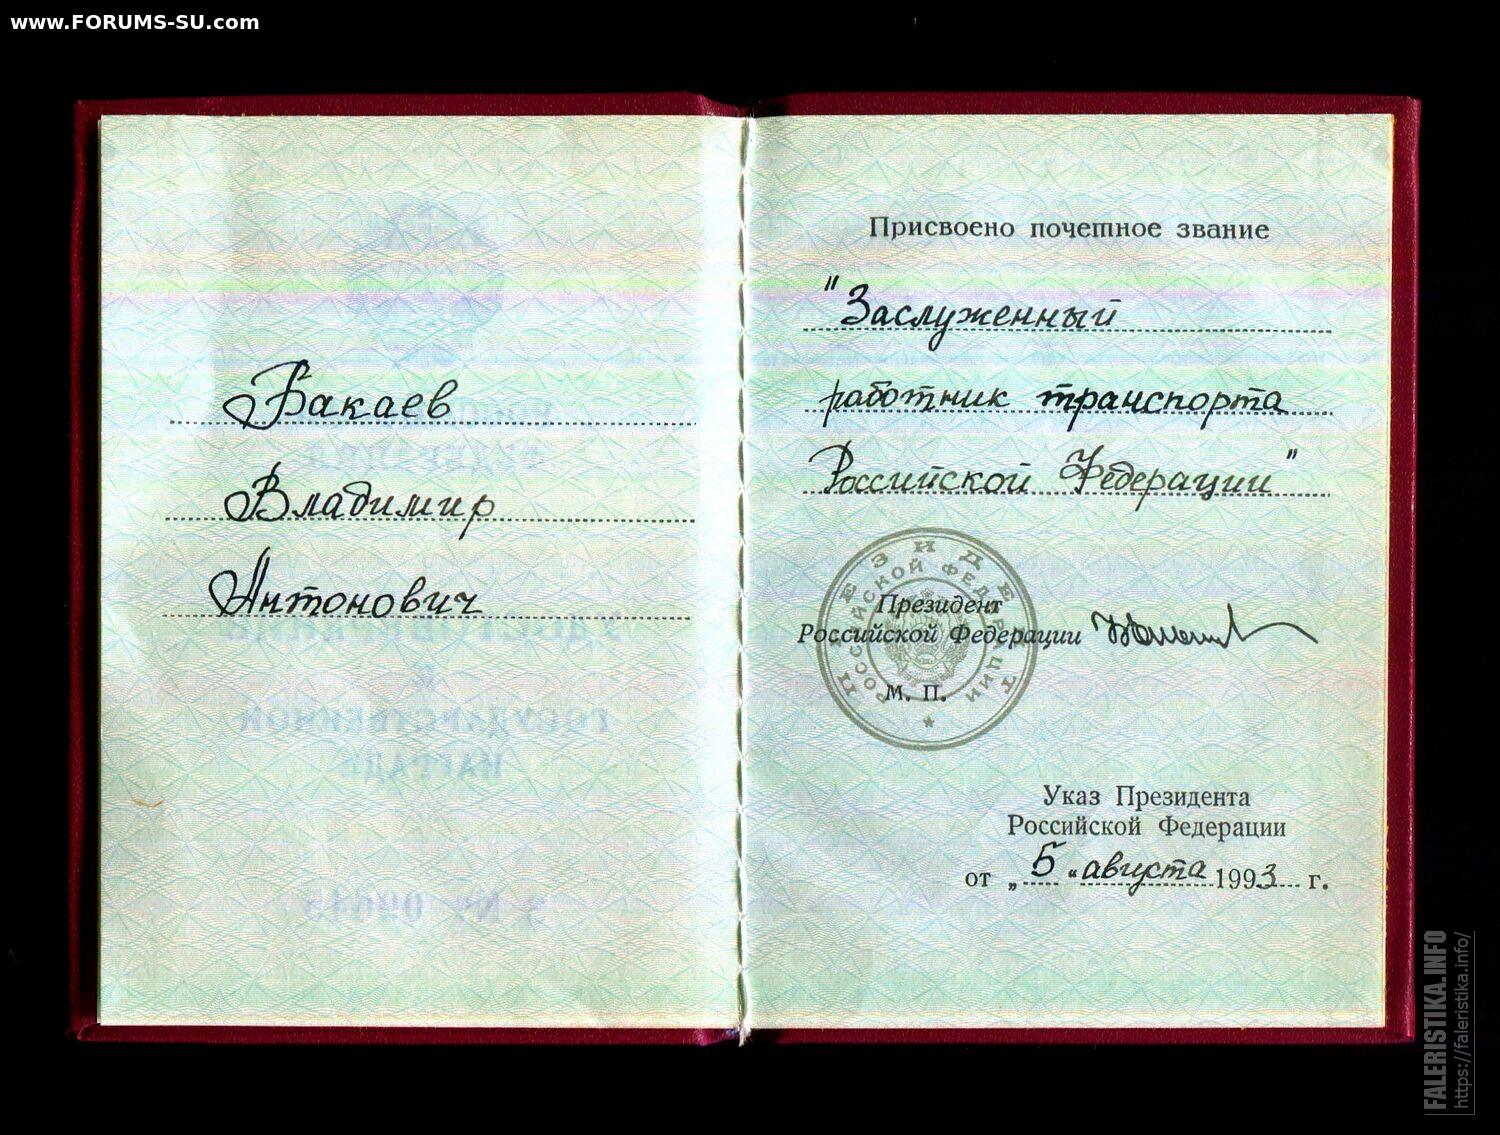 www.FORUMS-SU.com
Бакаев
Владимир
Антонович
Присвоено почетное звание
"Заслуженный
работник транспорта
Российской Федерации"
ПРЕЗИДЕНТ
РОССИЙСКОЙ ФЕДЕРАЦИИ
Президент
Российской Федерации
М. П.
Указ Президента
Российской Федерации
от „5“ августа 1993 г.
FALERISTIKA.INFO
https://faleristika.info/